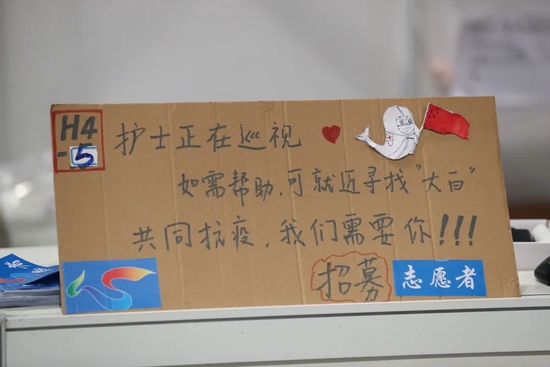 H4
-5
护士正在巡视
如需帮助,可就近寻找"大白"
共同抗疫,我们需要你!!!
招募
志愿者